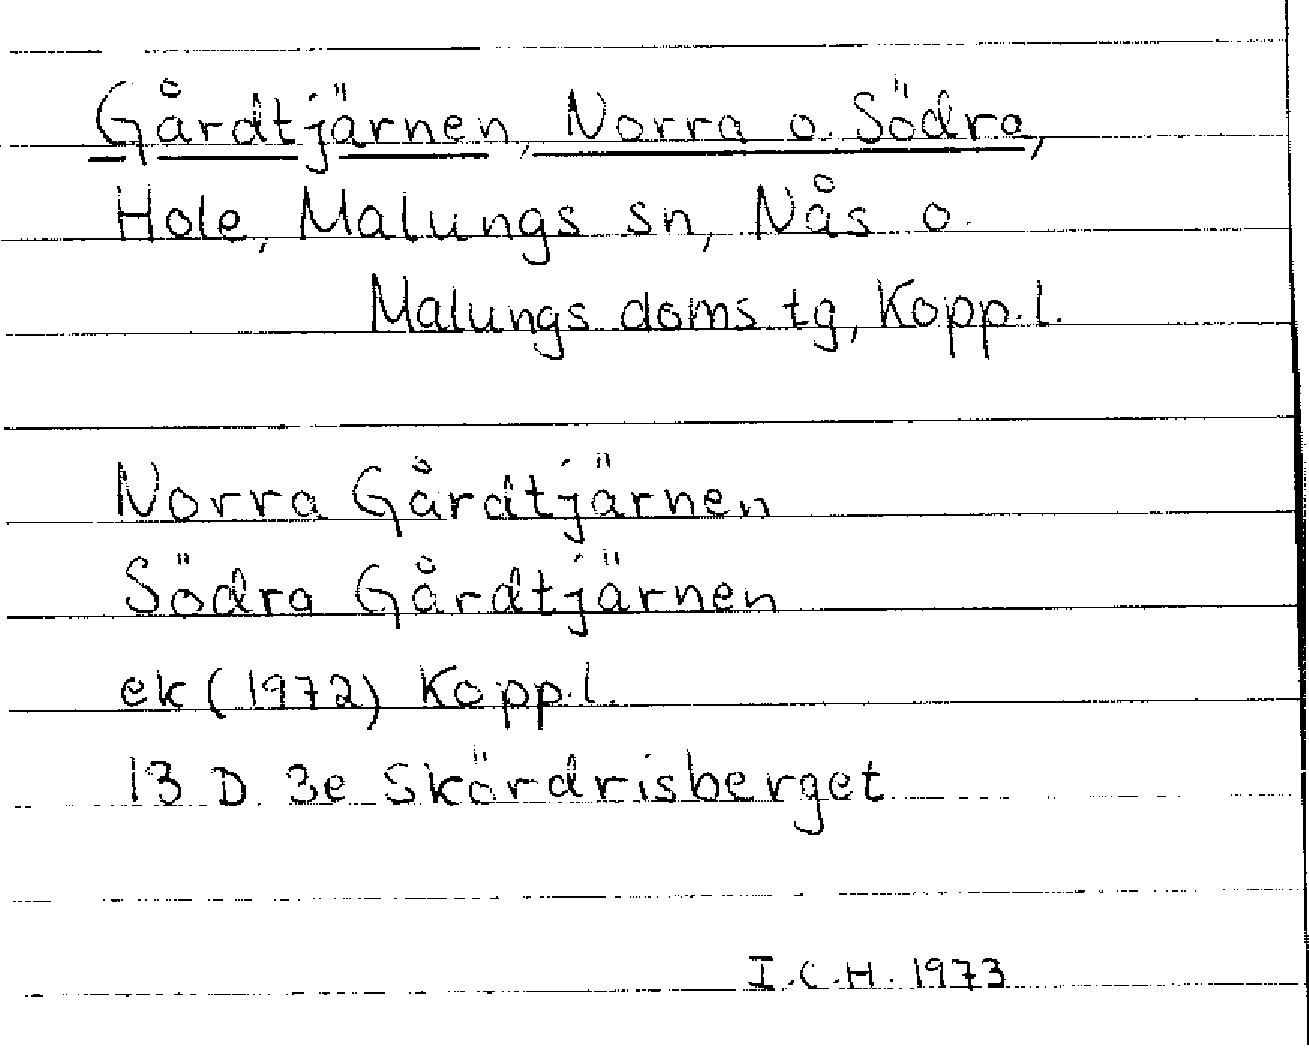 Gårdtjärnen, Norra o. Södra,
Hole, Malungs sn, Nås o.
Malungs doms tg, Kopp.l.
Norra Gårdtjärnen
Södra Gårdtjärnen
ek (1972) Kopp.l.
13 D 3e Skördrisberget
I.C.H. 1973